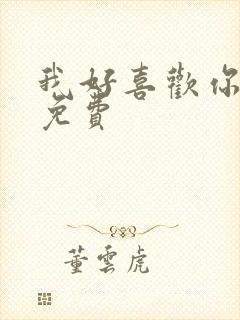 我好喜歡你
免費
董雲虎